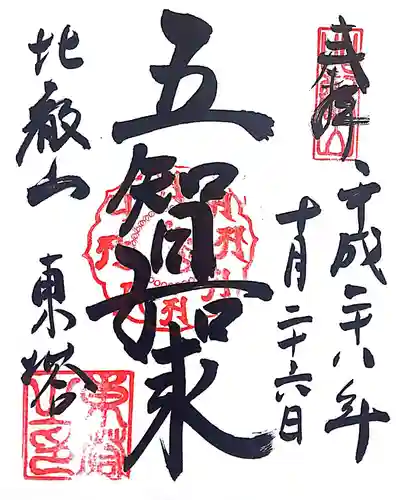 奉拝
平成二十八年
十月二十六日
五智如来
比叡山 東塔